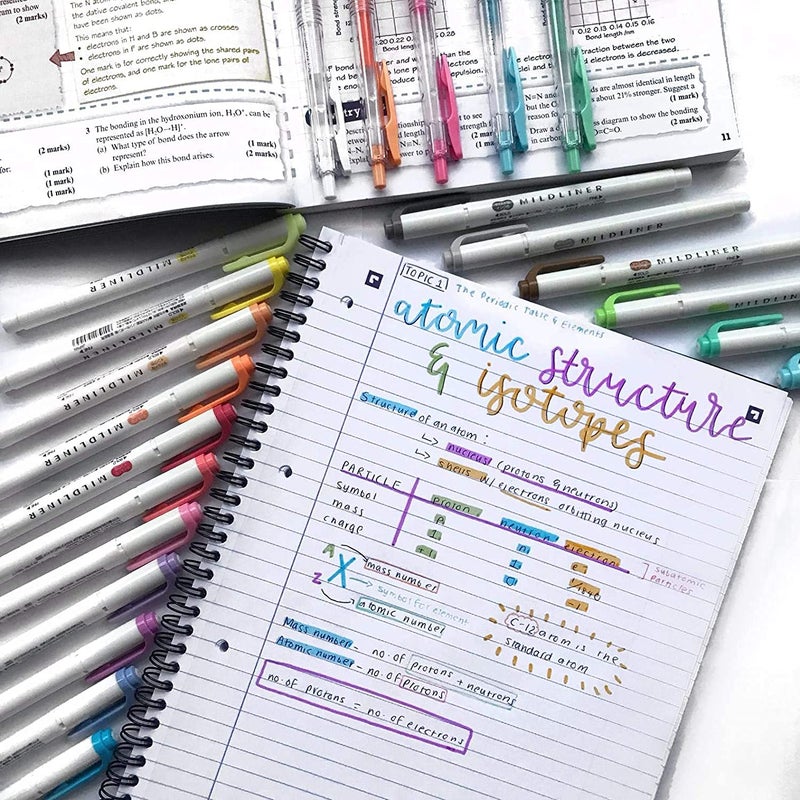 the dative covalent bond, and
have been shown as dots.
This means that:
• electrons in H and B are shown as crosses
• electrons in F are shown as dots.
One mark is for correctly showing the shared pairs
of electrons, and one mark for the lone pairs of
electrons.
(2 marks)
3 The bonding in the hydroxonium ion, H₃O⁺, can be
represented as [H₂O→H]⁺.
(a) What type of bond does the arrow
represent? (1 mark)
(b) Explain how this bond arises. (2 marks)
(2 marks)
(1 mark)
(1 mark)
(1 mark)
Bond length/nm
Bond length/nm
0.12 0.13 0.14 0.15 0.16
traction between the two
electrons is decreased.
ds are almost identical in length
about 21% stronger. Suggest a
(1 mark)
diagram to show the bonding
O=C=O. (2 marks)
11
MILDLINER
MILDLINER
MILDLINER
MILDLINER
MILDLINER
MILDLINER
MILDLINER
MILDLINER
MILDLINER
TOPIC 1 The Periodic Table & Elements
atomic structure
& isotopes
Structure of an atom:
↳ nucleus (protons & neutrons)
↳ shells w/ electrons orbiting nucleus
PARTICLE proton neutron electron
symbol p n e⁻
mass 1 1 1/1840
charge +1 0 -1
subatomic
particles
A
Z X
mass number
symbol for element
atomic number
C-12 atom is the
standard atom
Mass number = no. of protons + neutrons
Atomic number = no. of protons
no. of protons = no. of electrons